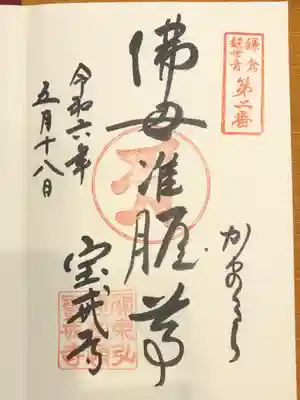 鎌倉
観世音
第二番
かまくら
佛母准胝尊
宝戒寺
令和六年
五月十八日